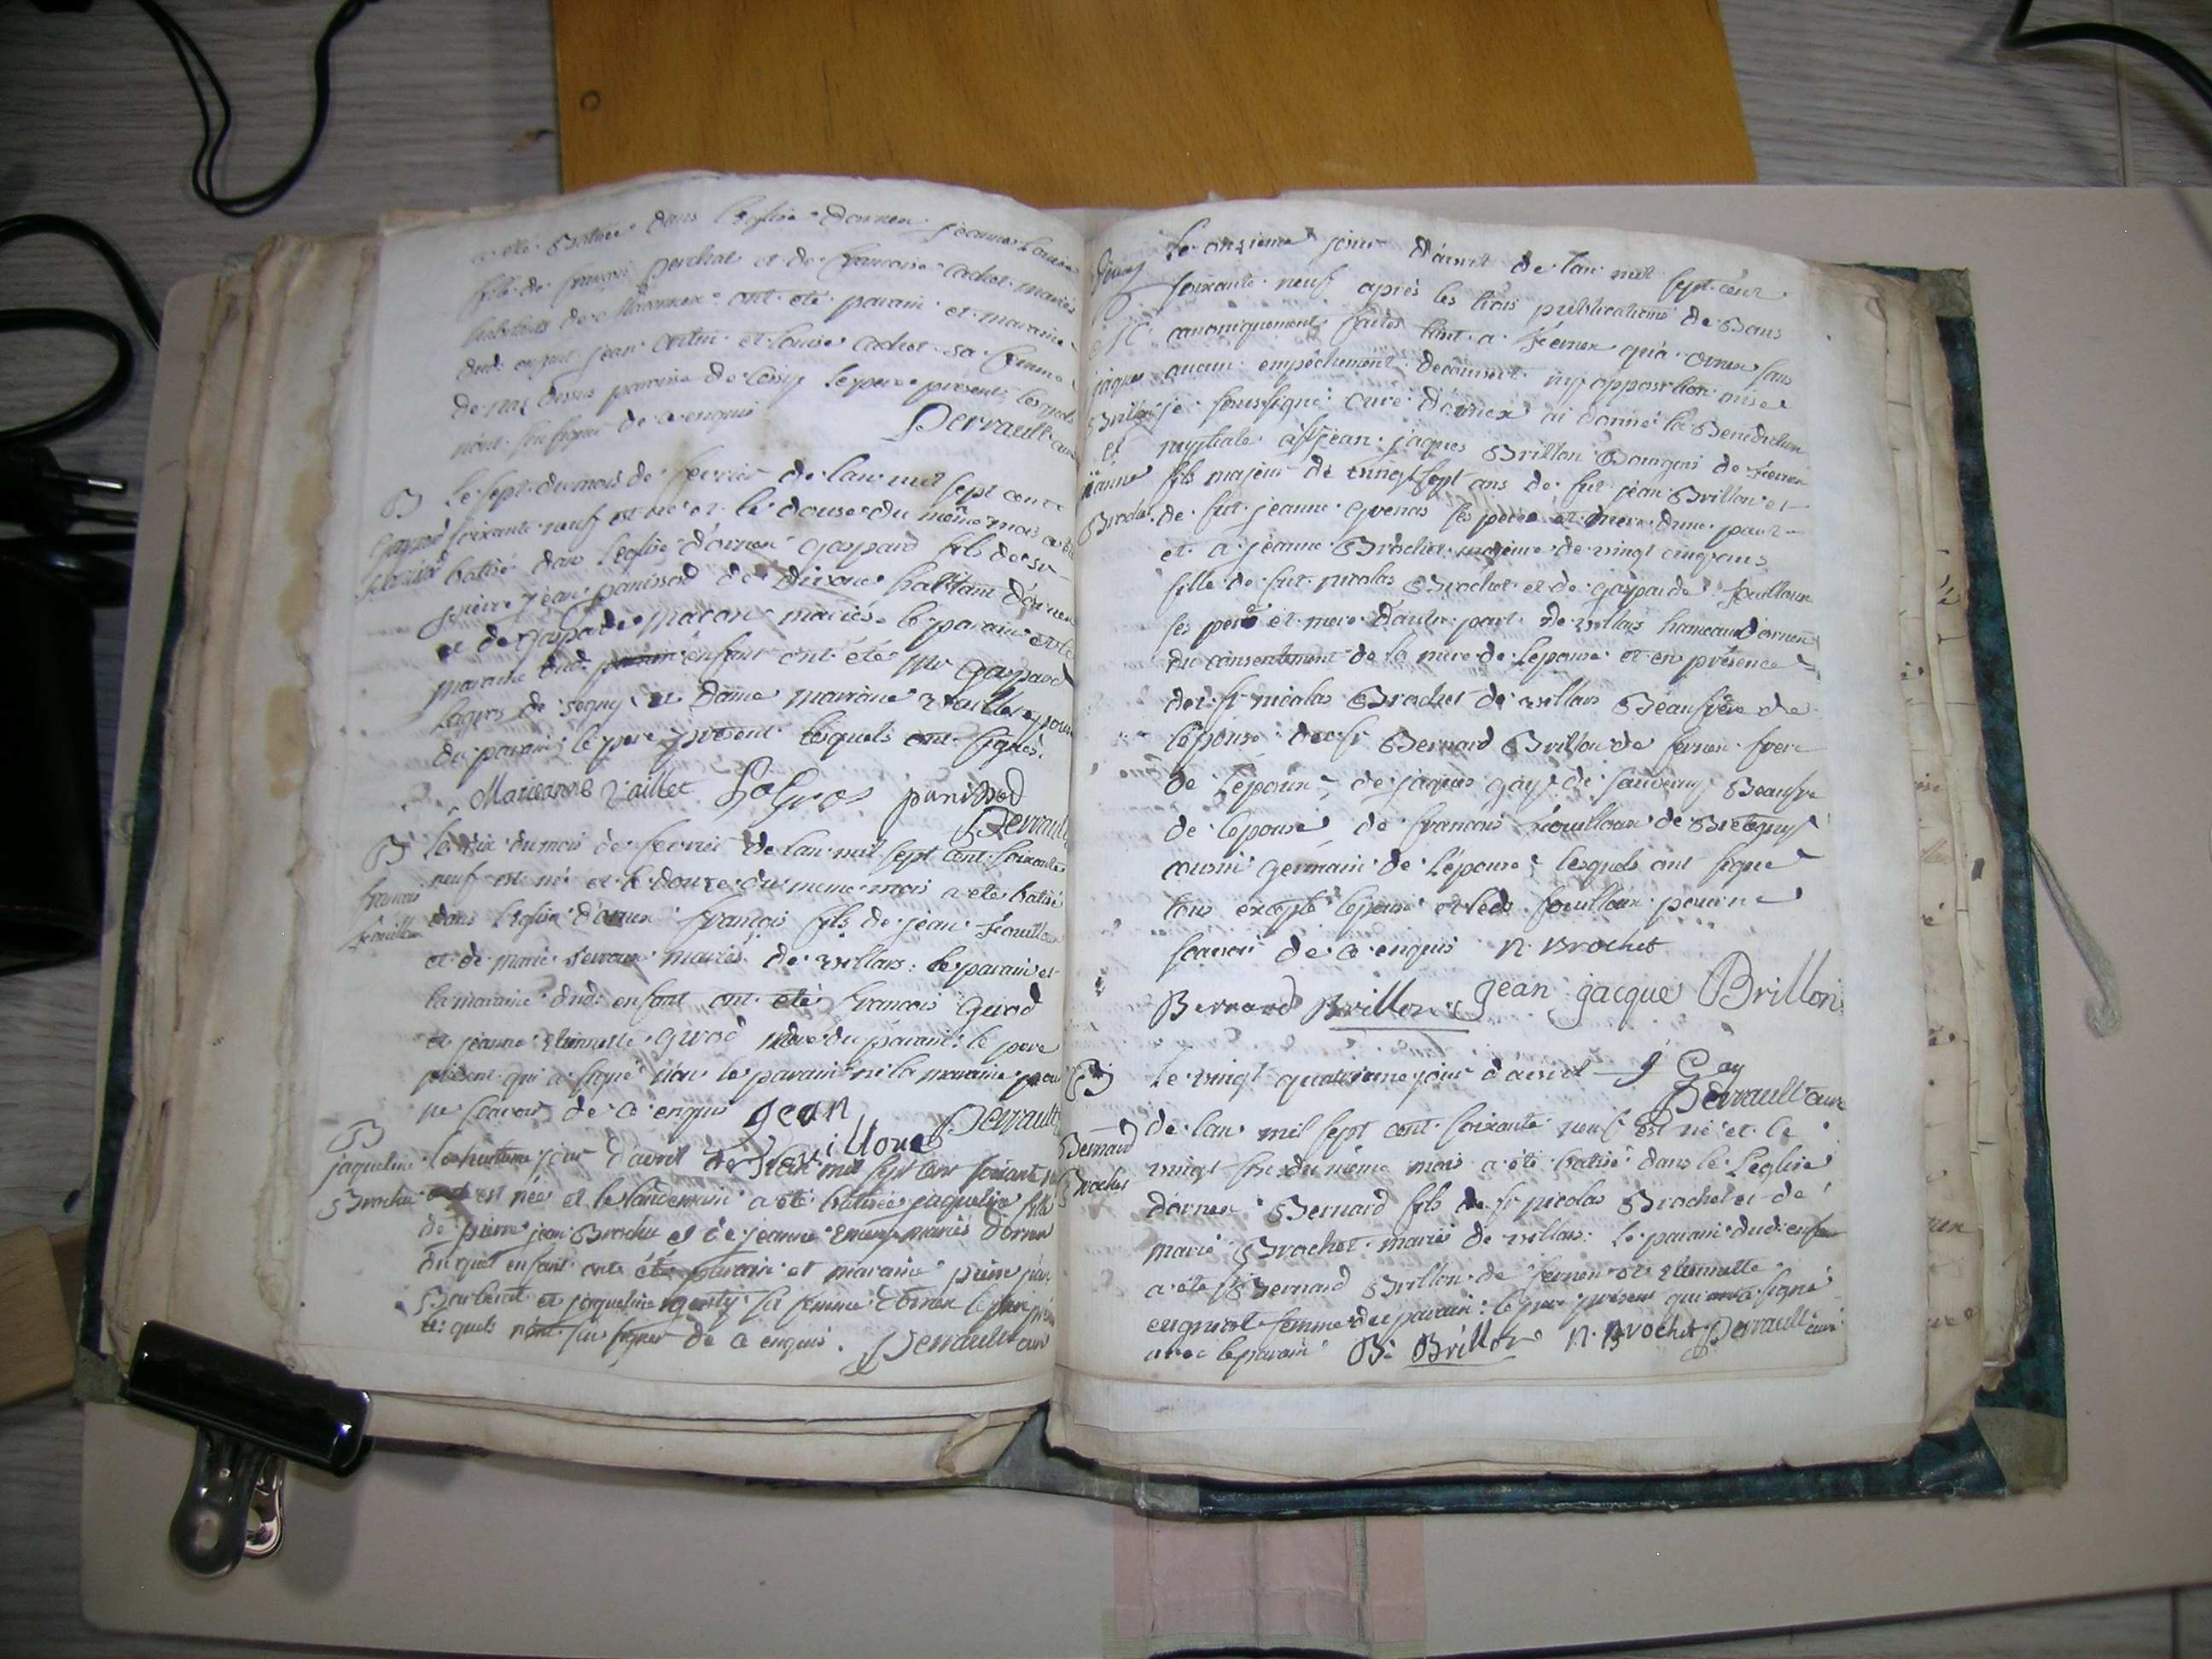 a été Batisée dans l'eglise d'ornex jeanne Louise
fille de françois perchat et de francoise cochet mariés
habitans de ont été parain et maraine
dud. enfant jean et louise cochet sa femme
de paroisse de le pere present lesquels
n'ont sçu signer de ce enquis
Perrault curé
B Le sept du mois de fevrier de l'an mil sept cent
soixante neuf est né et le douse du même mois a été
battisé dans l'eglise d'ornex gaspard fils de sr
pierre jean panissod de habitant d'ornex
et de gasparde macon mariés. le parain et la
maraine dud. enfant ont été Mr gaspard
Lagros de segny et Dame marianne vaillet epouse
du parain; le pere present lesquels ont signés.
Marieanne Vaillet LaGros panissod
Perrault
B Le dix du mois de fevrier de l'an mil sept cent soixante
neuf est né et le douze du meme mois a été batisé
francois
dans l'eglise d'ornex francois fils de jean fouilloux
et de marie mariés de villars: le parain et
la maraine dud. enfant ont été francois girod
et jeanne girod mere du parain: le pere
présent qui a signé non le parain ni la maraine pour
ne scavoir de ce enquis jean
fouilloux Perrault
B
jaqueline le huitieme jour d'avril de l'an mil sept cent soixante
Brochu est née et le landemain a été batisée jaqueline fille
de pierre jean Brochu et de jeanne mariés d'ornex
duquel enfant ont été parain et maraine pierre jean
Barberat et jaqueline sa femme d'ornex le pere
lesquels n'ont sçu signer de ce enquis. Perrault curé
Le onzieme jour d'avril de l'an mil sept cent
soixante neuf après les trois publications de Bans
canoniquement faites tant a fernex qu'a ornex sans
jaques aucun empêchement decouvert ny opposition mise
Brillon je soussigné curé d'ornex ai donné la Benediction
et nuptiale à sr jean jaques Brillon Bourgeois de fernex
janne fils majeur de vingt sept ans de fut jean Brillon et
Brochet de fut jeanne quenas ses pere et mere d'une part
et a jeanne Brochet majeure de vingt cinq ans
fille de fut nicolas Brochet et de gasparde fouilloux
ses pere et mere d'autre part de villars hameau d'ornex
du consentement de la mere de l'epouse et en présence
de sr nicolas Brochet de villars Beaufrere de
l'epouse de sr Bernard Brillon de fernex frere
de L'epoux, de jaques gay de sauverny Beaufre
de l'epouse de francois fouilloux de Bretigny
cousin germain de l'épouse; lesquels ont signé
tous excepté l'epouse et led. fouilloux pour ne
scavoir de ce enquis N. Brochet
Bernard Brillon jean jacque Brillon
B Le vingt quatrieme jour d'avril J Gay
Perrault curé
de l'an mil sept cent soixante neuf est né et le
Bernard
vingt six du même mois a été batisé dans l'eglise
Brochet
d'ornex Bernard fils de sr nicolas Brochet et de
marie Brochet mariés de villars: le parain dud. enfant
a été sr Bernard Brillon de fernex et
femme du parain: le pere present qui a signé
avec le parain B. Brillon N. Brochet Perrault curé